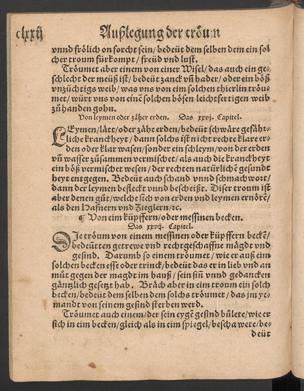 clxxij Außlegung der tröum
vnnd frölich on forcht sein / bedeüt dem selben dem ein sol
cher troum fürkompt / freüd vnd lust.
Tröumet aber einem von einer Wisel / das auch ein ge-
schlecht der meüß ist / bedeüt zanck vñ hader / oder ein böß
vnzüchtigs weib / was vns von eim solchen thierlin tröu-
met / würt vns von eine solchen bösen leichtfertigen weib
zů handen gohn.
Von leymen oder zäher erden. Das xxvj. Capitel.
LEymen / lätt / oder zähe erden / bedeüt schwäre gefähr-
liche kranckheyt / dann solchs ist nicht rechte klare er-
den oder klar wasser / sonder ein schleym / von der erden
vñ wasser zůsammen vermischet / als auch die kranckheyt
ein böß vermischet wesen / der rechten natürliche gesundt
heyt entgegen. Bedeüt auch schand vnnd schmachwort /
dann der leymen befleckt vnnd bescheißt. Diser troum ist
aber denen gůt / welche sich von erden vnd leymen ernörẽ /
als den Hafnern vnd Zieglern / ꝛc.
¶ Von eim küpffern / oder messinen becken.
Das xxvij. Capitel.
DJe tröum von einem messinen oder küpffern beckẽ /
bedeütten getrewe vnd rechtgeschaffne mägdt vnd
gesind. Darumb so einem tröumet / wie er auß ein
solchen becken esse oder trinck / bedeüt das er in lieb vnd an
můt gegen der magdt im hauß / sein siñ vnnd gedancken
gäntzlich gesetzt hab. Bräch aber in eim troum ein solch
becken / bedeüt dem selben dem solchs tröumet / das jm ye-
mandt von seinem gesind sterben werd.
Tröumet auch einem / der sein eygẽ gesind hülte / wie er
sich in ein becken / gleich als in eim spiegel / beschawete / be-
deüt